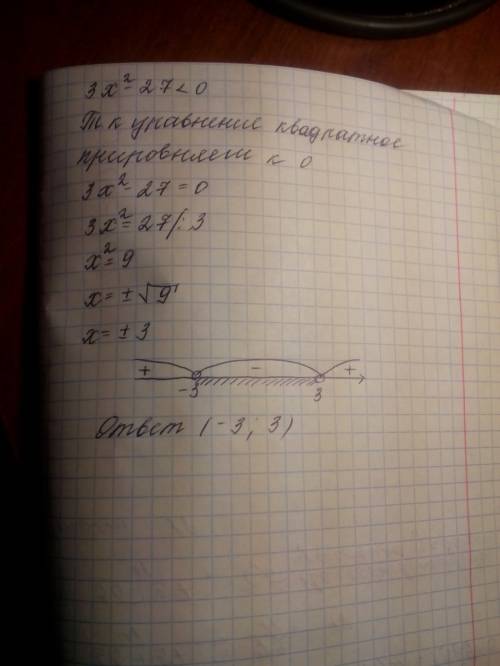 3x² - 27 < 0
Т к уравнение квадратное
прировняем к 0
3x² - 27 = 0
3x² = 27 /: 3
x² = 9
x = ± √9
x = ± 3
+ - +
-3 3
Ответ (-3; 3)